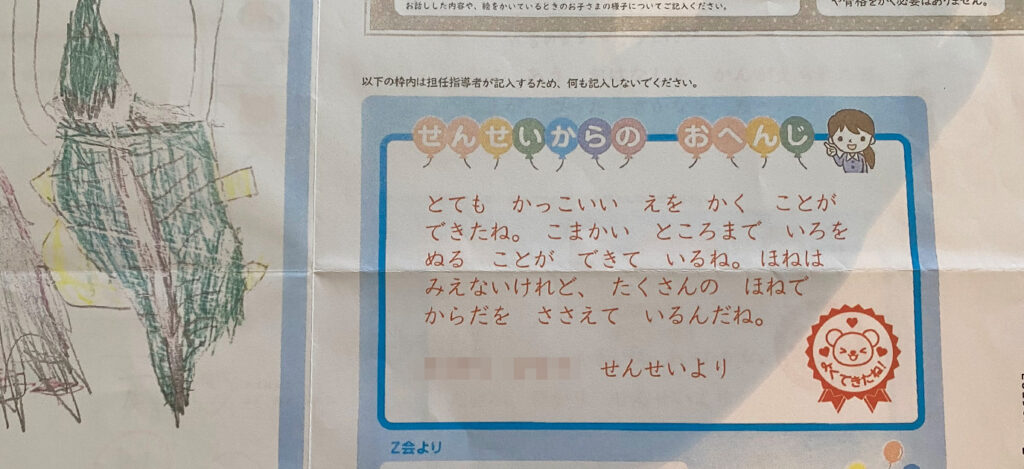 お話しした内容や、絵をかいているときのお子さまの様子についてご記入ください。
や骨格をかく必要はありません。
以下の枠内は担任指導者が記入するため、何も記入しないでください。
せんせいからの おへんじ
とても かっこいい えを かく ことが
できたね。 こまかい ところまで いろを
ぬる ことが できて いるね。 ほねは
みえないけれど、 たくさんの ほねで
からだを ささえて いるんだね。
せんせいより
よくできたね!
Z会より